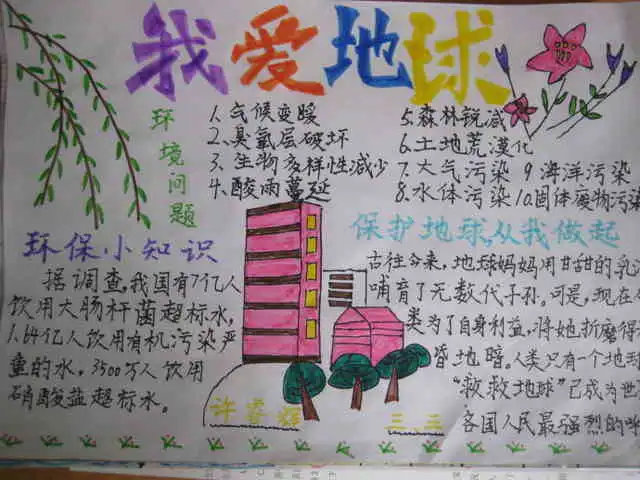 我爱地球
环境问题
1.气候变暖
2.臭氧层破坏
3.生物多样性减少
4.酸雨蔓延
5.森林锐减
6.土地荒漠化
7.大气污染 9海洋污染
8.水体污染 10.固体废物污染
环保小知识
据调查,我国有7亿人
饮用大肠杆菌超标水,
1.64亿人饮用有机污染严
重的水。3500万人饮用
硝酸盐超标水。
保护地球,从我做起
古往今来,地球妈妈用甘甜的乳
哺育了无数代子孙。可是,现在
类为了自身利益,将她折磨得
昏地暗。人类只有一个地球
“救救地球”已成为世
各国人民最强烈的呼
许
三.三